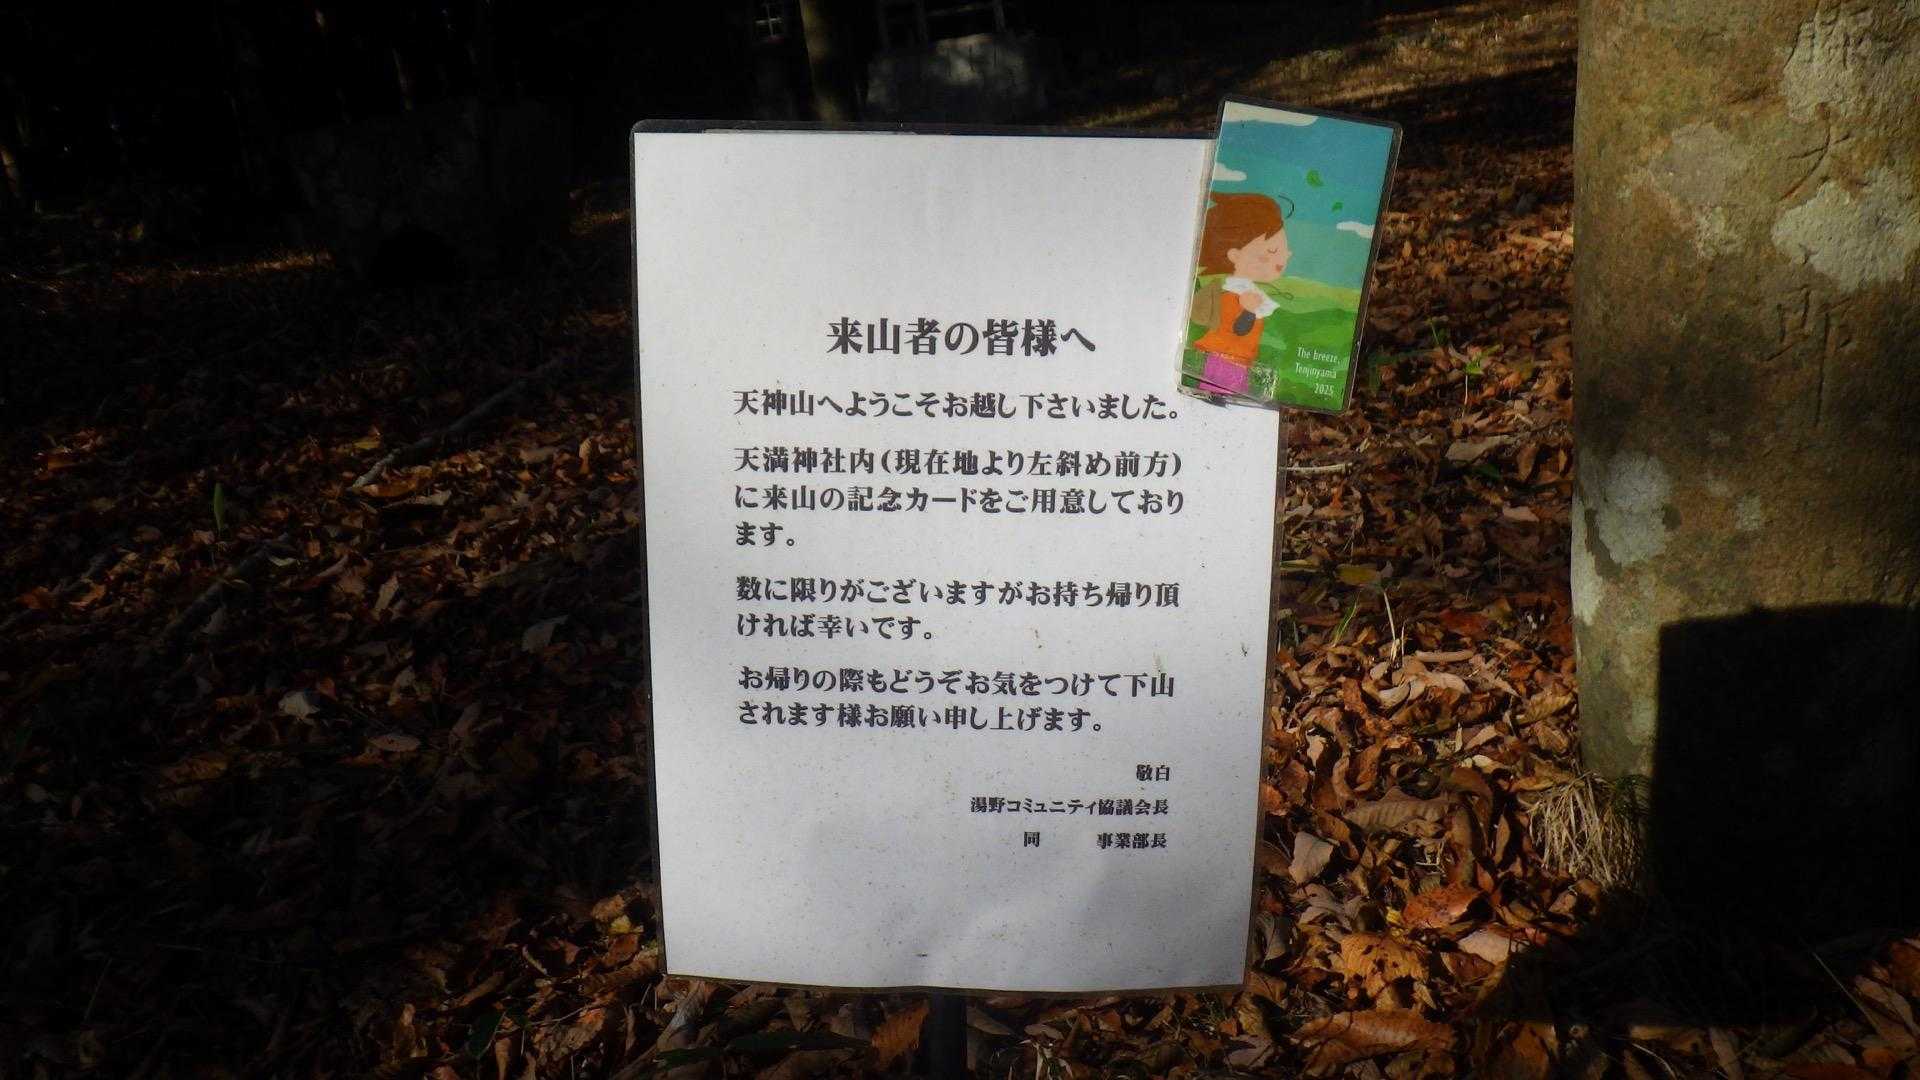 来山者の皆様へ
天神山へようこそお越し下さいました。
天満神社内(現在地より左斜め前方)
に来山の記念カードをご用意しており
ます。
数に限りがございますがお持ち帰り頂
ければ幸いです。
お帰りの際もどうぞお気をつけて下山
されます様お願い申し上げます。
敬白
湯野コミュニティ協議会長
同 事業部長
The breeze,
Tenjinyama
2025